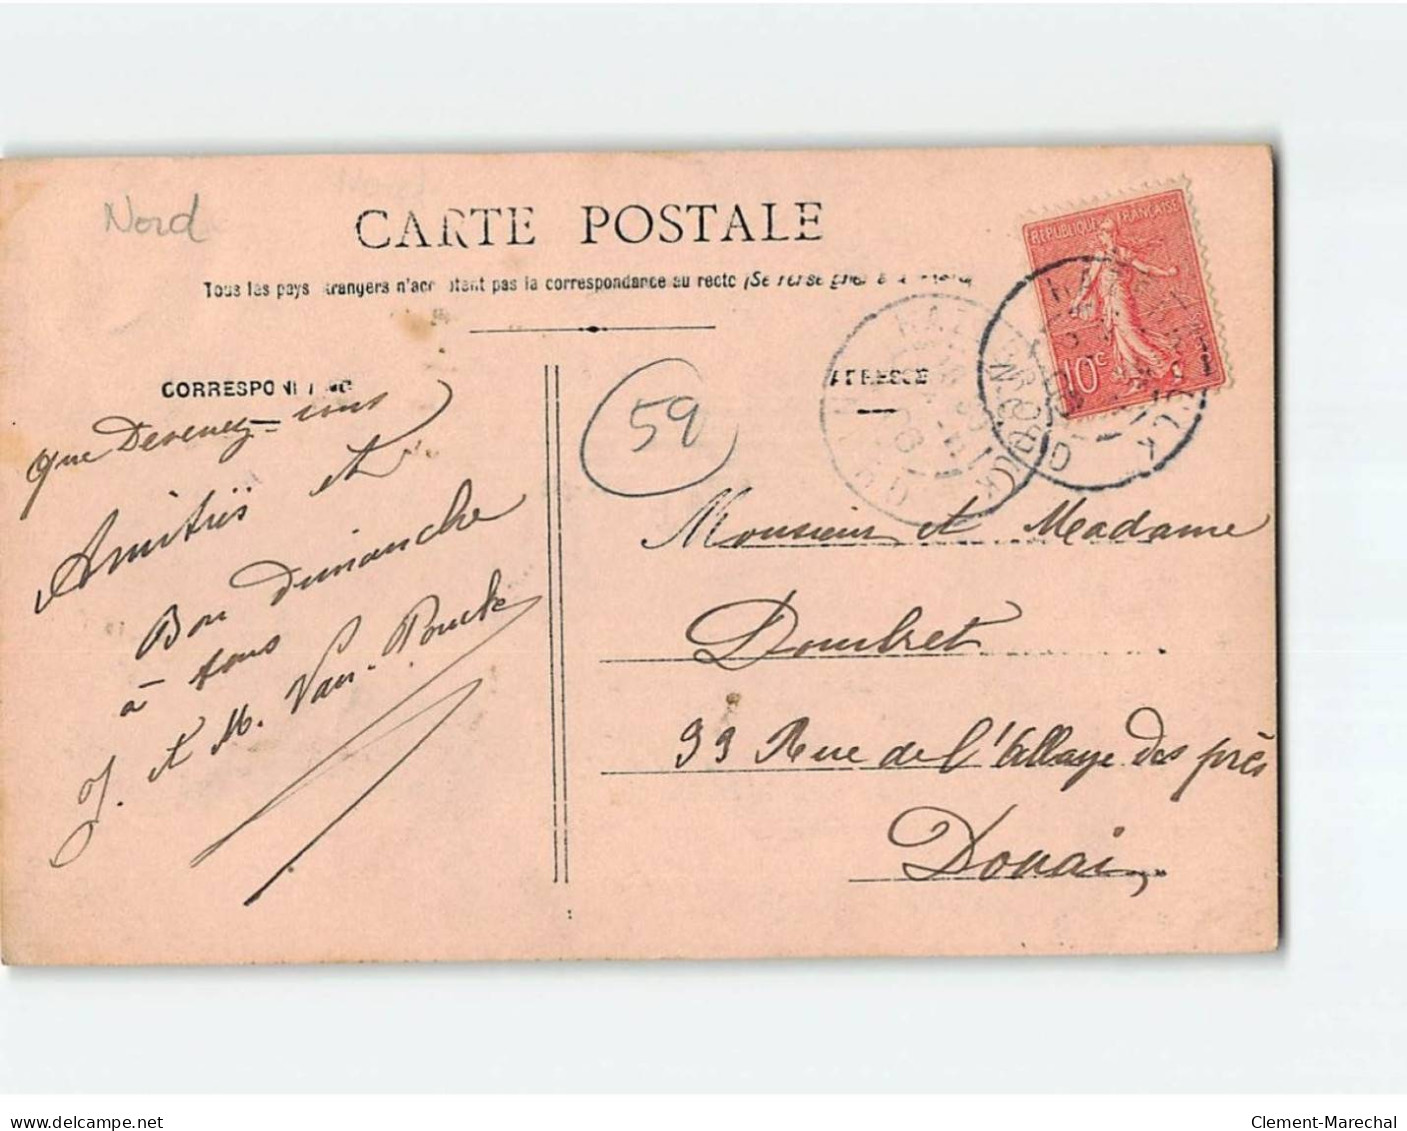 Nord
CARTE POSTALE
Tous les pays étrangers n'acceptant pas la correspondance au recto (Se renseigner à la Poste)
REPUBLIQUE FRANÇAISE
10c
CORRESPONDANCE
ADRESSE
59
HAZEBROUCK
NORD
HAZEBROUCK
NORD
que Devenez-vous
Amitiés et
Bon dimanche
à tous
J. et M. Van-Poucke
Monsieur et Madame
Doubret
93 Rue de l'Abbaye des près
Douai
delcampe.net
Clement-Marechal